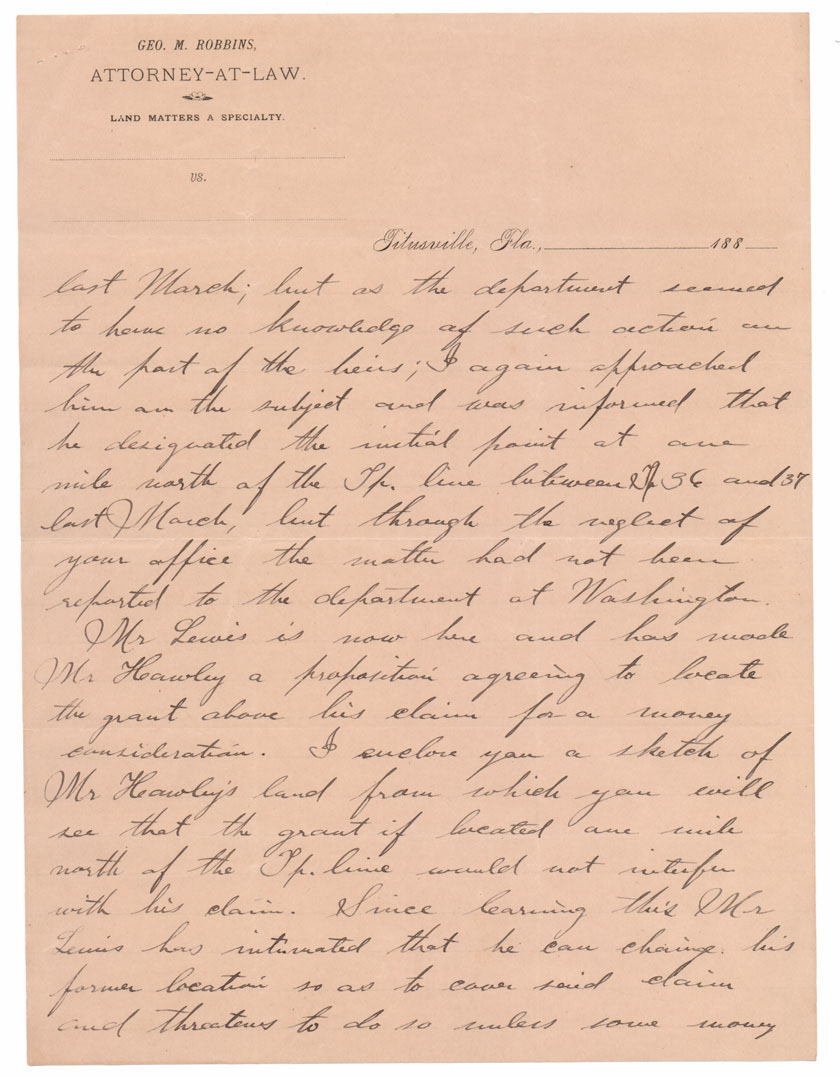 GEO. M. ROBBINS,
ATTORNEY-AT-LAW.
LAND MATTERS A SPECIALTY.
vs.
Titusville, Fla., 188
last March; but as the department seemed
to have no knowledge of such action on
the part of the heirs; I again approached
him on the subject and was informed that
he designated the initial point at one
mile north of the Tp. line between Tp 36 and 37
last March, but through the neglect of
your office the matter had not been
reported to the department at Washington.
Mr Lewis is now here and has made
Mr Hawley a proposition agreeing to locate
the grant above his claim for a money
consideration. I enclose you a sketch of
Mr Hawley's land from which you will
see that the grant if located one mile
north of the Tp. line would not interfer
with his claim. Since learning this Mr
Lewis has intimated that he can change his
former location so as to cover said claim
and threatens to do so unless some money